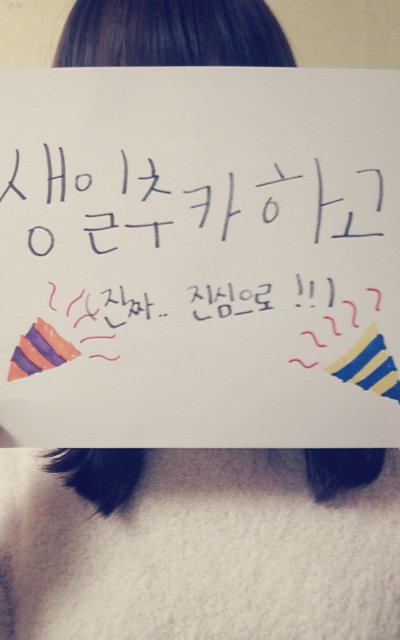 생일추카하고
(진짜.. 진심으로 !!!)